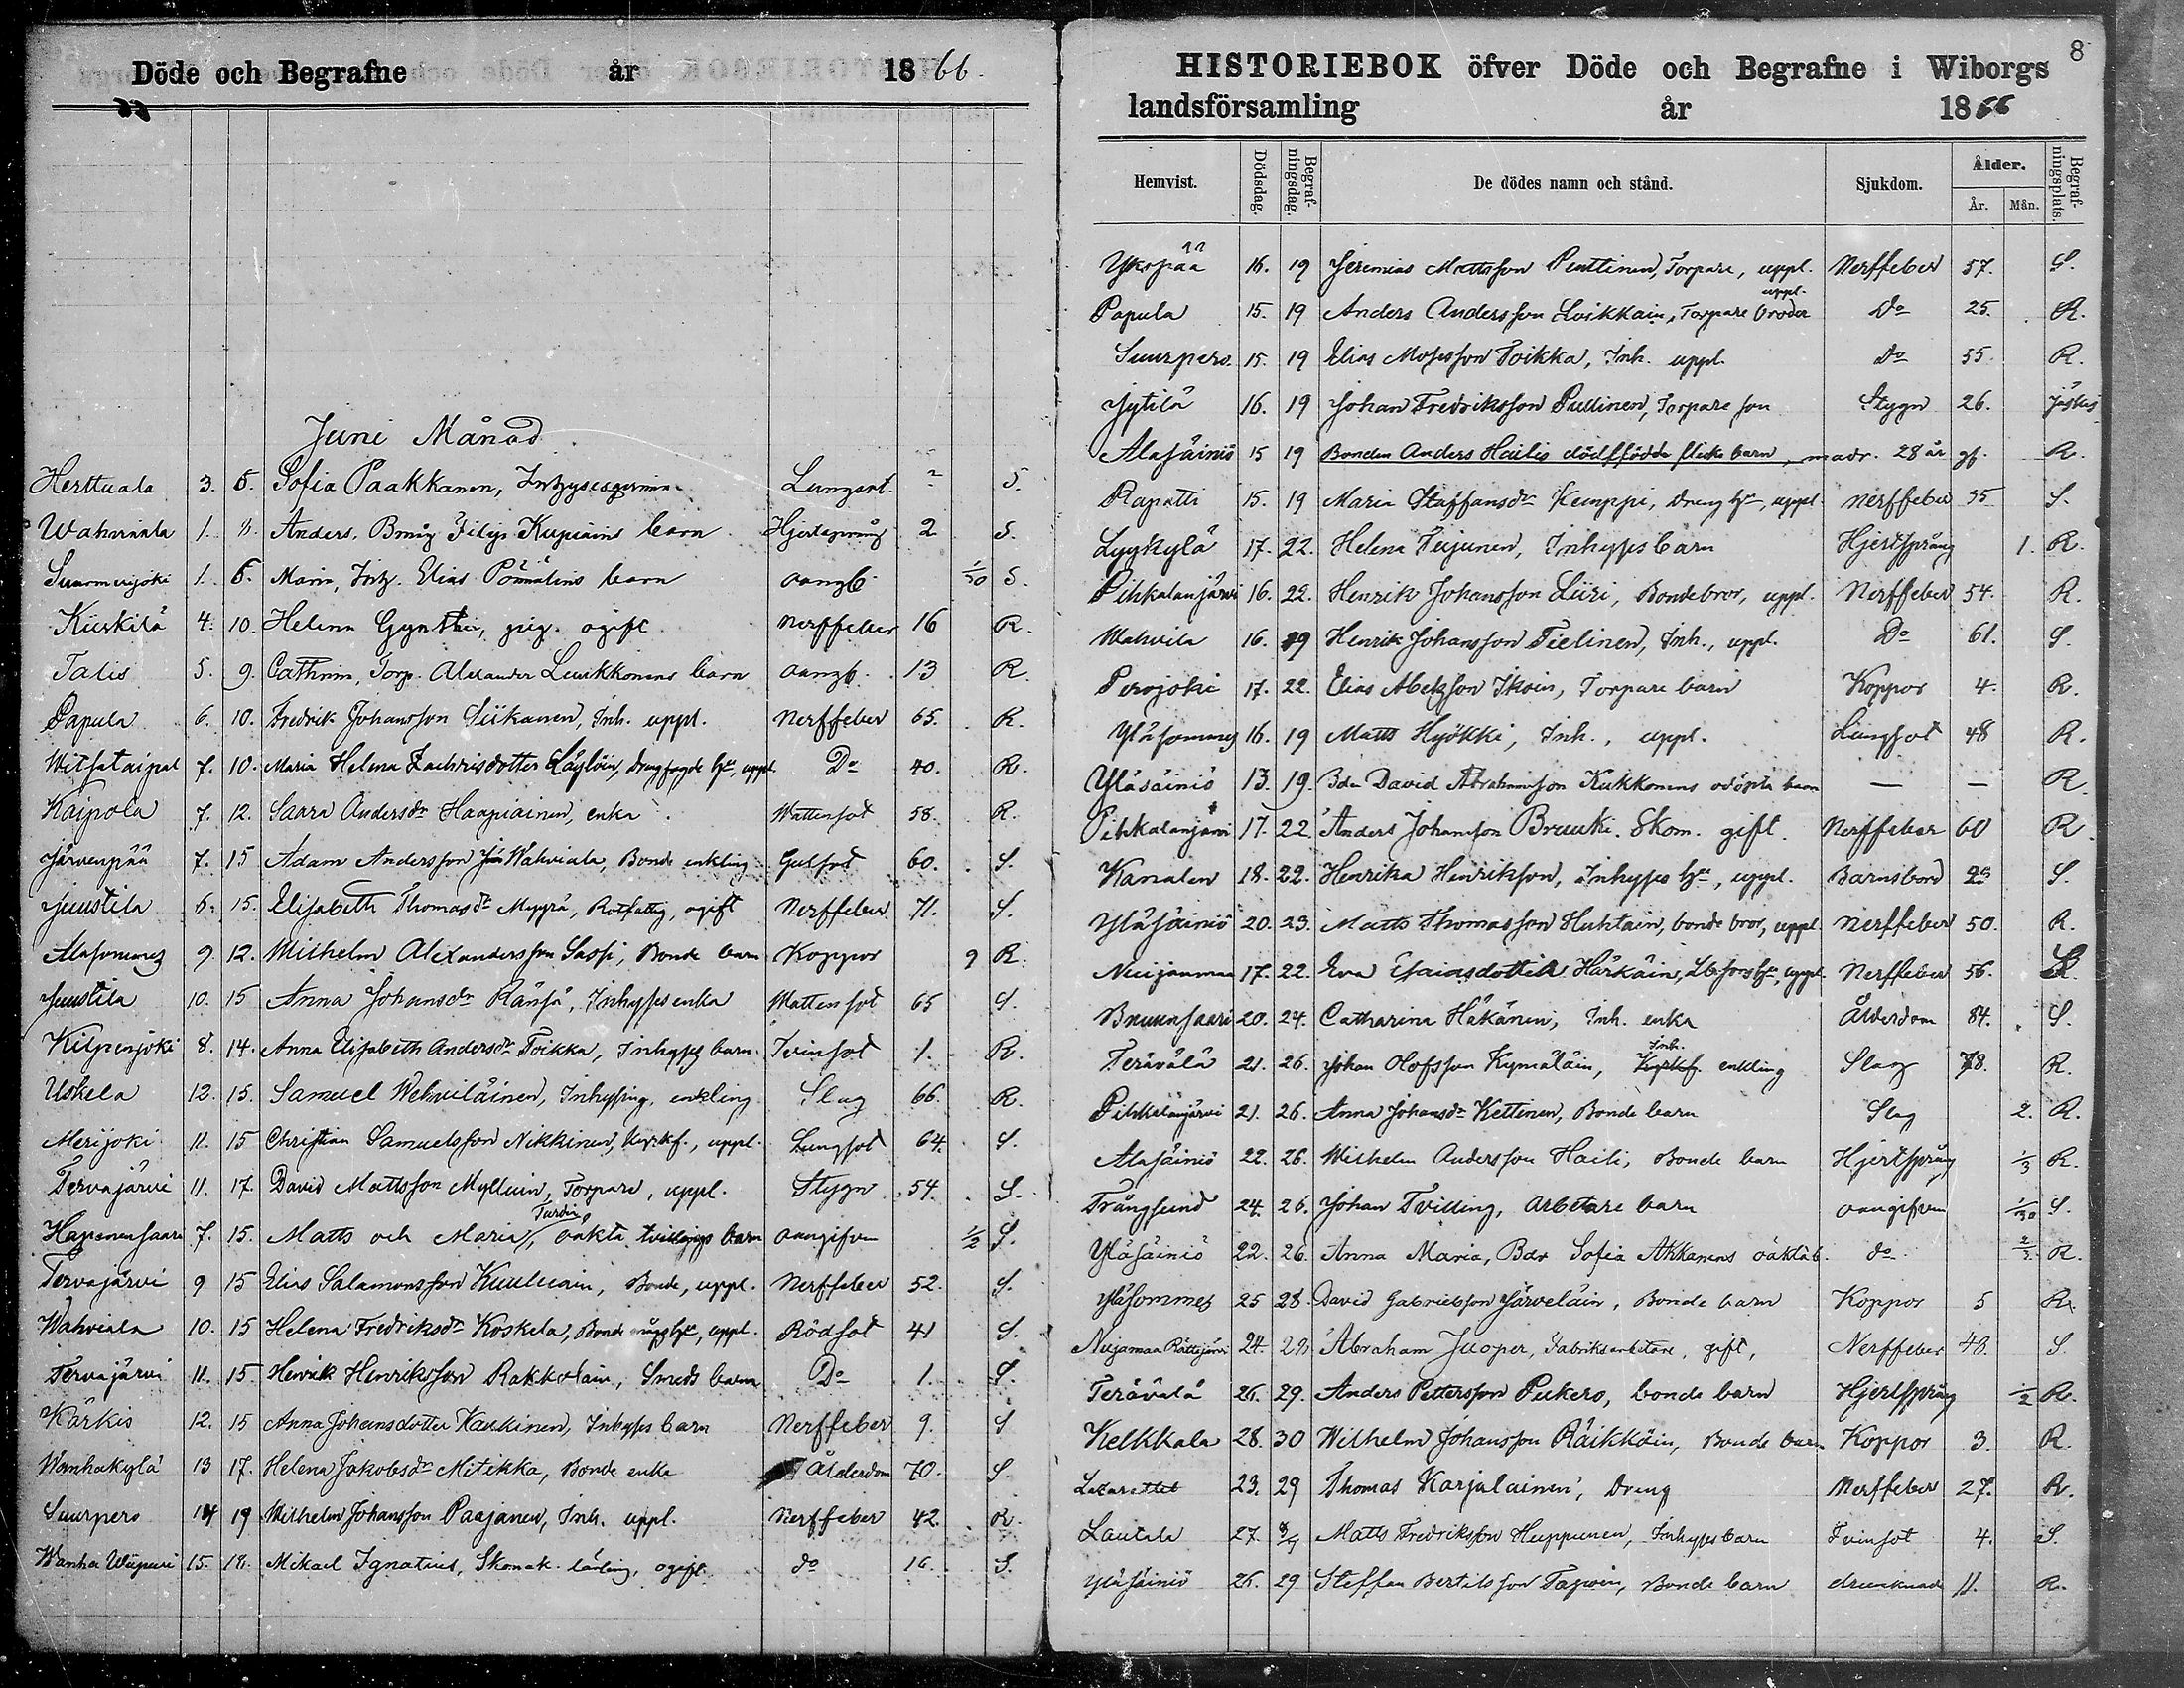 Döde och Begrafne år 1866.
66
Juni Månad
Herttuala 3. 5. Sofia Paakkanen, Lungsot. ? S.
Wahviala 1. Anders, Filips Kupiains barn Hjertsprång 2 S.
Suurmerijoki 1. 5. Maria, Inh. Elias Pömmäläins barn oangb. 1/30 S.
Kiiskilä 4. 10. Helena Gynther, pig. ogift Nerffeber 16 R.
Talis 5. 9. Cathrina, Torp. Alexander Leuikkonens barn oangb. 13 R.
Papula 6. 10. Fredrik Johansson Siikanen, Inh. uppl. Nerffeber 65. R.
Witsataipal 7. 10. Maria Helena Zachrisdotter drag fogde hu, uppl. Do 40. R.
Kaipola 7. 12. Saara Andersdr Haapiainen, enka Wattensot 58. R.
Järvenpää 7. 15 Adam Andersson Wahviala, Bonde enkling Gulsot 60. S.
Juustila 6. 15. Elisabeth Thomasdr Mäyrä, Rotfattig, ogift Nerffeber 71. S.
Alasommes 9. 12. Wilhelm Alexandersson Sassi, Bonde barn Koppor 9 R.
Juustila 10. 15 Anna Johansdr Ränsä, Inhyses enka Wattensot 65 S.
Kilpenjoki 8. 14. Anna Elisabeth Andersdr Toikka, Inhyses barn. Tvinsot 1. R.
Uskela 12. 15. Samuel Wehviläinen, Inhysing, enkling Slag 66. R.
Merijoki 11. 15 Christian Samuelsson Nikkinen, Kyrkf., uppl. Lungsot 64. S.
Tervajärvi 11. 17. David Mattsson Mylläin, Torpare, uppl. Stygn 54. S.
Hapenensaari 7. 15. Matts och Maria, Turdin oäkta tvillings barn oangifven 1/2 S.
Tervajärvi 9 15 Elias Salamonsson Kuuluain, Bonde, uppl. Nerffeber 52. S.
Wahviala 10. 15 Helena Fredriksdr Koskela, Bonde mågs hu, uppl. Rödsot 41 S.
Tervajärvi 11. 15. Henrik Henriksson Rakkolain, Smeds barn Do 1. S.
Kärkis 12. 15 Anna Johansdotter Kaukinen, Inhyses barn Nerffeber 9. S
Wanhakylä 13 17. Helena Jakobsdr Mitikka, Bonde enka Ålderdom 70. S.
Suurpero 14 19 Wilhelm Johansson Paajanen, Inh. uppl. Nerffeber 42. R.
Wanha Wiipuri 15. 18. Mikael Ignatius, Skomak. lärling, ogift do 16. S.
8
HISTORIEBOK öfver Döde och Begrafne i Wiborgs
landsförsamling år 1866
Hemvist. Dödsdag. Begrafningsdag. De dödes namn och stånd. Sjukdom. Ålder. År. Mån. Begrafningsplats.
Ykspää 16. 19 Jeremias Mattsson Penttinen, Torpare, uppl. Nerffeber 57. S.
Papula 15. 19 Anders Andersson Loikkain, Torpare broder uppl. Do 25. R.
Suurpero. 15. 19 Elias Mosesson Toikka, Inh. uppl. Do 55. R.
Jytilä 16. 19 Johan Fredriksson Pullinen, Torpare son Stygn 26. Jäskis
Alasäiniö 15 19 Bonden Anders Hailis dödsfödda flicko barn, modr. 28 år gf. R.
Rapatti 15. 19 Maria Staffansdr Kemppi, dreng hu, uppl. Nerffeber 35 S.
Lyykylä 17. 22. Helena Teijunen, Inhyses barn Hjertsprång 1. R.
Pihkalanjärvi 16. 22. Henrik Johansson Liiri, Bondebror, uppl. Nerffeber 54. R.
Wahvila 16. 19 Henrik Johansson Tielinen, Inh., uppl. Do 61. S.
Perojoki 17. 22. Elias Abelsson Ikoin, Torpare barn Koppor 4. R.
Yläsommes 16. 19 Matts Hyökki, Inh., uppl. Lungsot 48 R.
Yläsäiniö 13. 19. Bdn David Abrahamsson Kukkonens odöpta barn — — R.
Pihkalanjärvi 17. 22. Anders Johansson Bruuki. Skom. gift. Nerffeber 60 R
Kanalen 18. 22. Henrika Henriksson, Inhyses hu, uppl. Barnsbörd S.
Yläsäiniö 20. 23. Matts Thomasson Huhtain, bonde bror, uppl. Nerffeber 50. R.
Nuijamaa 17. 22. Eva Esaiasdotter Härkäin, uppl. Nerffeber 56. S.
Bruunsaari 20. 24. Catharina Häkänen, Inh. enka Ålderdom 84. S.
Terävälä 21. 26. Johan Olofsson Kymäläin, Inh. enkling Slag 78. R.
Pihkalanjärvi 21. 26. Anna Johansdr Kettinen, Bonde barn Slag 2. R.
Alasäiniö 22. 26. Wilhelm Andersson Haili, Bonde barn Hjertsprång 1/3 R.
Trångsund 24. 26. Johan Tvilling, Arbetare barn oangifven 1/30 S.
Yläsäiniö 22. 26. Anna Maria, Bdr Sofia Akkanens oäkta b. do 2/3. R.
Yläsommes 25 28. David Gabrielsson Järveläin, Bonde barn Koppor 5 R.
Nuijamaa Rättijärvi 24. 29. Abraham Juoper, Fabriksarbetare, gift, Nerffeber 48. S
Terävälä 26. 29. Anders Pettersson Pukero, bonde barn Hjertsprång 1/2 R.
Kelkkala 28. 30 Wilhelm Johansson Räikköin, Bonde barn Koppor 3. R.
Lazarettet 23. 29 Thomas Karjalainen, Dreng Nerffeber 27. R.
Lautala 27. Matts Fredriksson Huppunen, Inhyses barn Tvinsot 4. S.
Yläsäiniö 26. 29 Steffan Bertilsson Tapoin, Bonde barn drunknad 11. R.